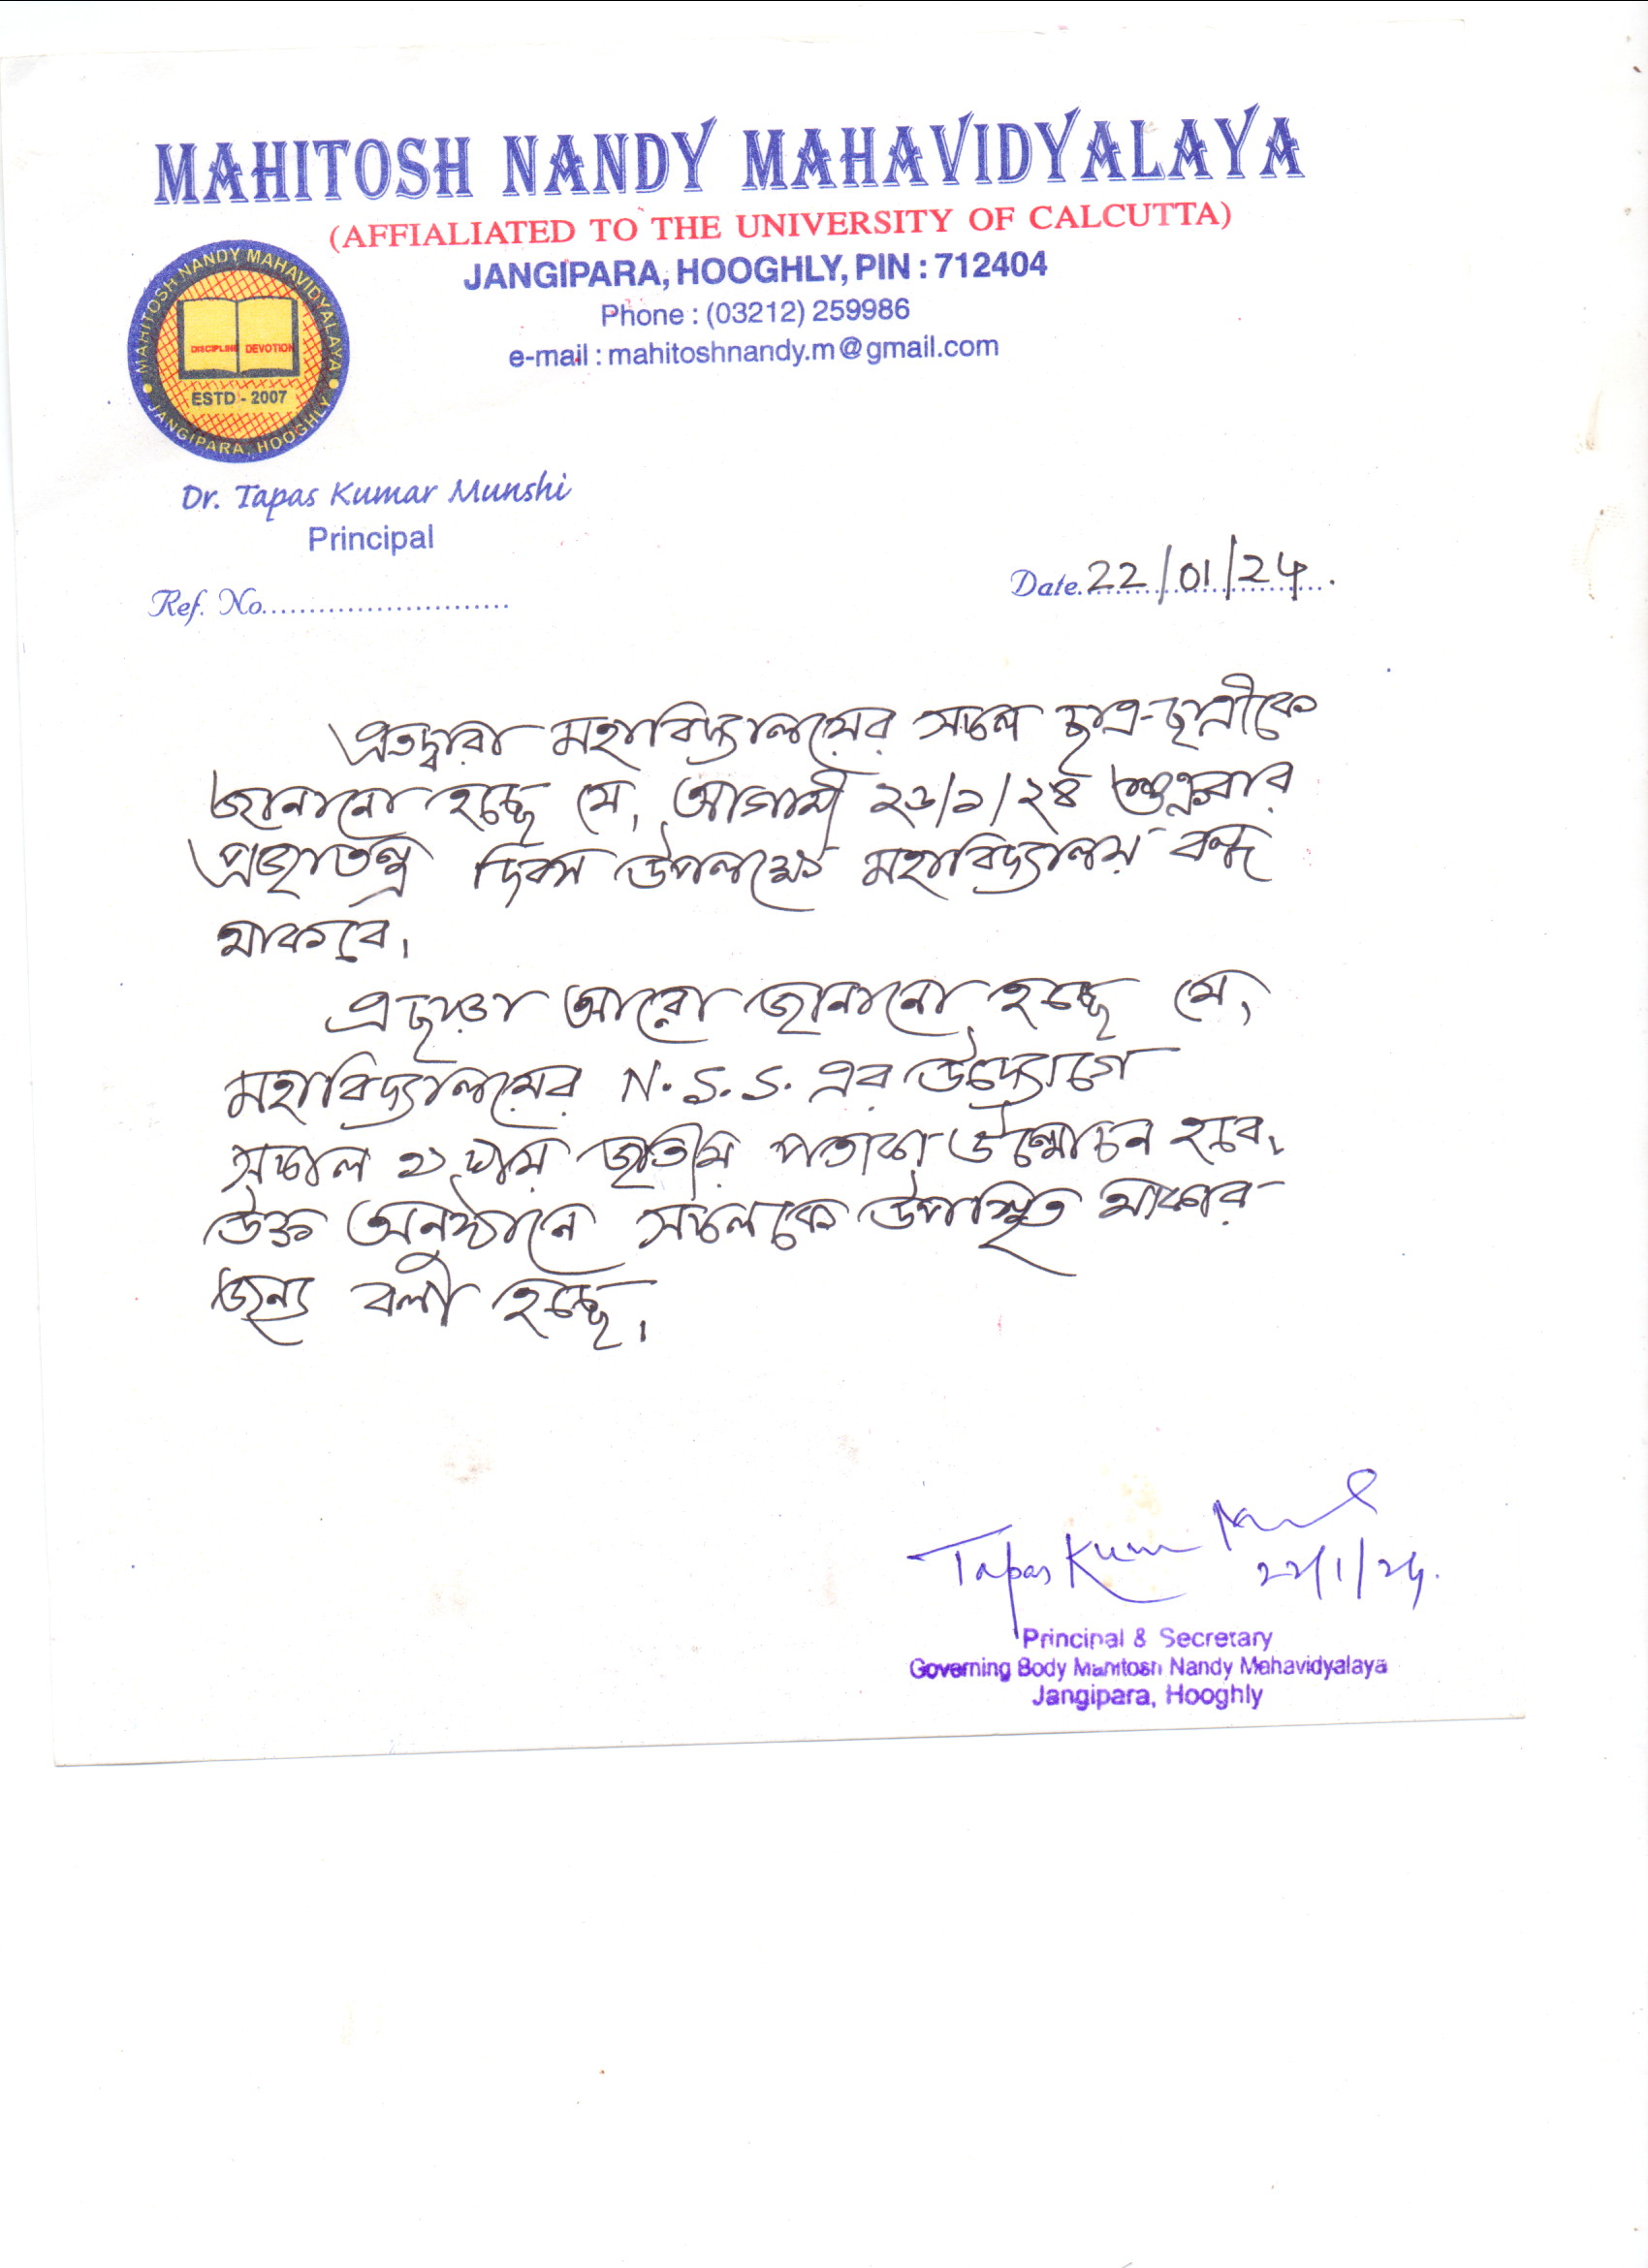 MAHITOSH NANDY MAHAVIDYALAYA
(AFFIALIATED TO THE UNIVERSITY OF CALCUTTA)
JANGIPARA, HOOGHLY, PIN : 712404
Phone : (03212) 259986
e-mail : mahitoshnandy.m@gmail.com
MAHITOSH NANDY MAHAVIDYALAYA
DISCIPLINE DEVOTION
ESTD - 2007
JANGIPARA, HOOGHLY
Dr. Tapas Kumar Munshi
Principal
Ref. No..........................
Date.22/01/24.
এতদ্বারা মহাবিদ্যালয়ের সকল ছাত্র-ছাত্রীকে
জানানো হচ্ছে যে, আগামী ২৬/১/২৪ শুক্রবার
প্রজাতন্ত্র দিবস উপলক্ষে মহাবিদ্যালয় বন্ধ
থাকবে।
এছাড়া আরো জানানো হচ্ছে যে,
মহাবিদ্যালয়ের N.S.S. এর উদ্যোগে
সকাল ৯ টায় জাতীয় পতাকা উন্মোচন হবে।
উক্ত অনুষ্ঠানে সকলকে উপস্থিত থাকার
জন্য বলা হচ্ছে।
Tapas Kumar
22/1/24.
Principal & Secretary
Governing Body Mahitosh Nandy Mahavidyalaya
Jangipara, Hooghly